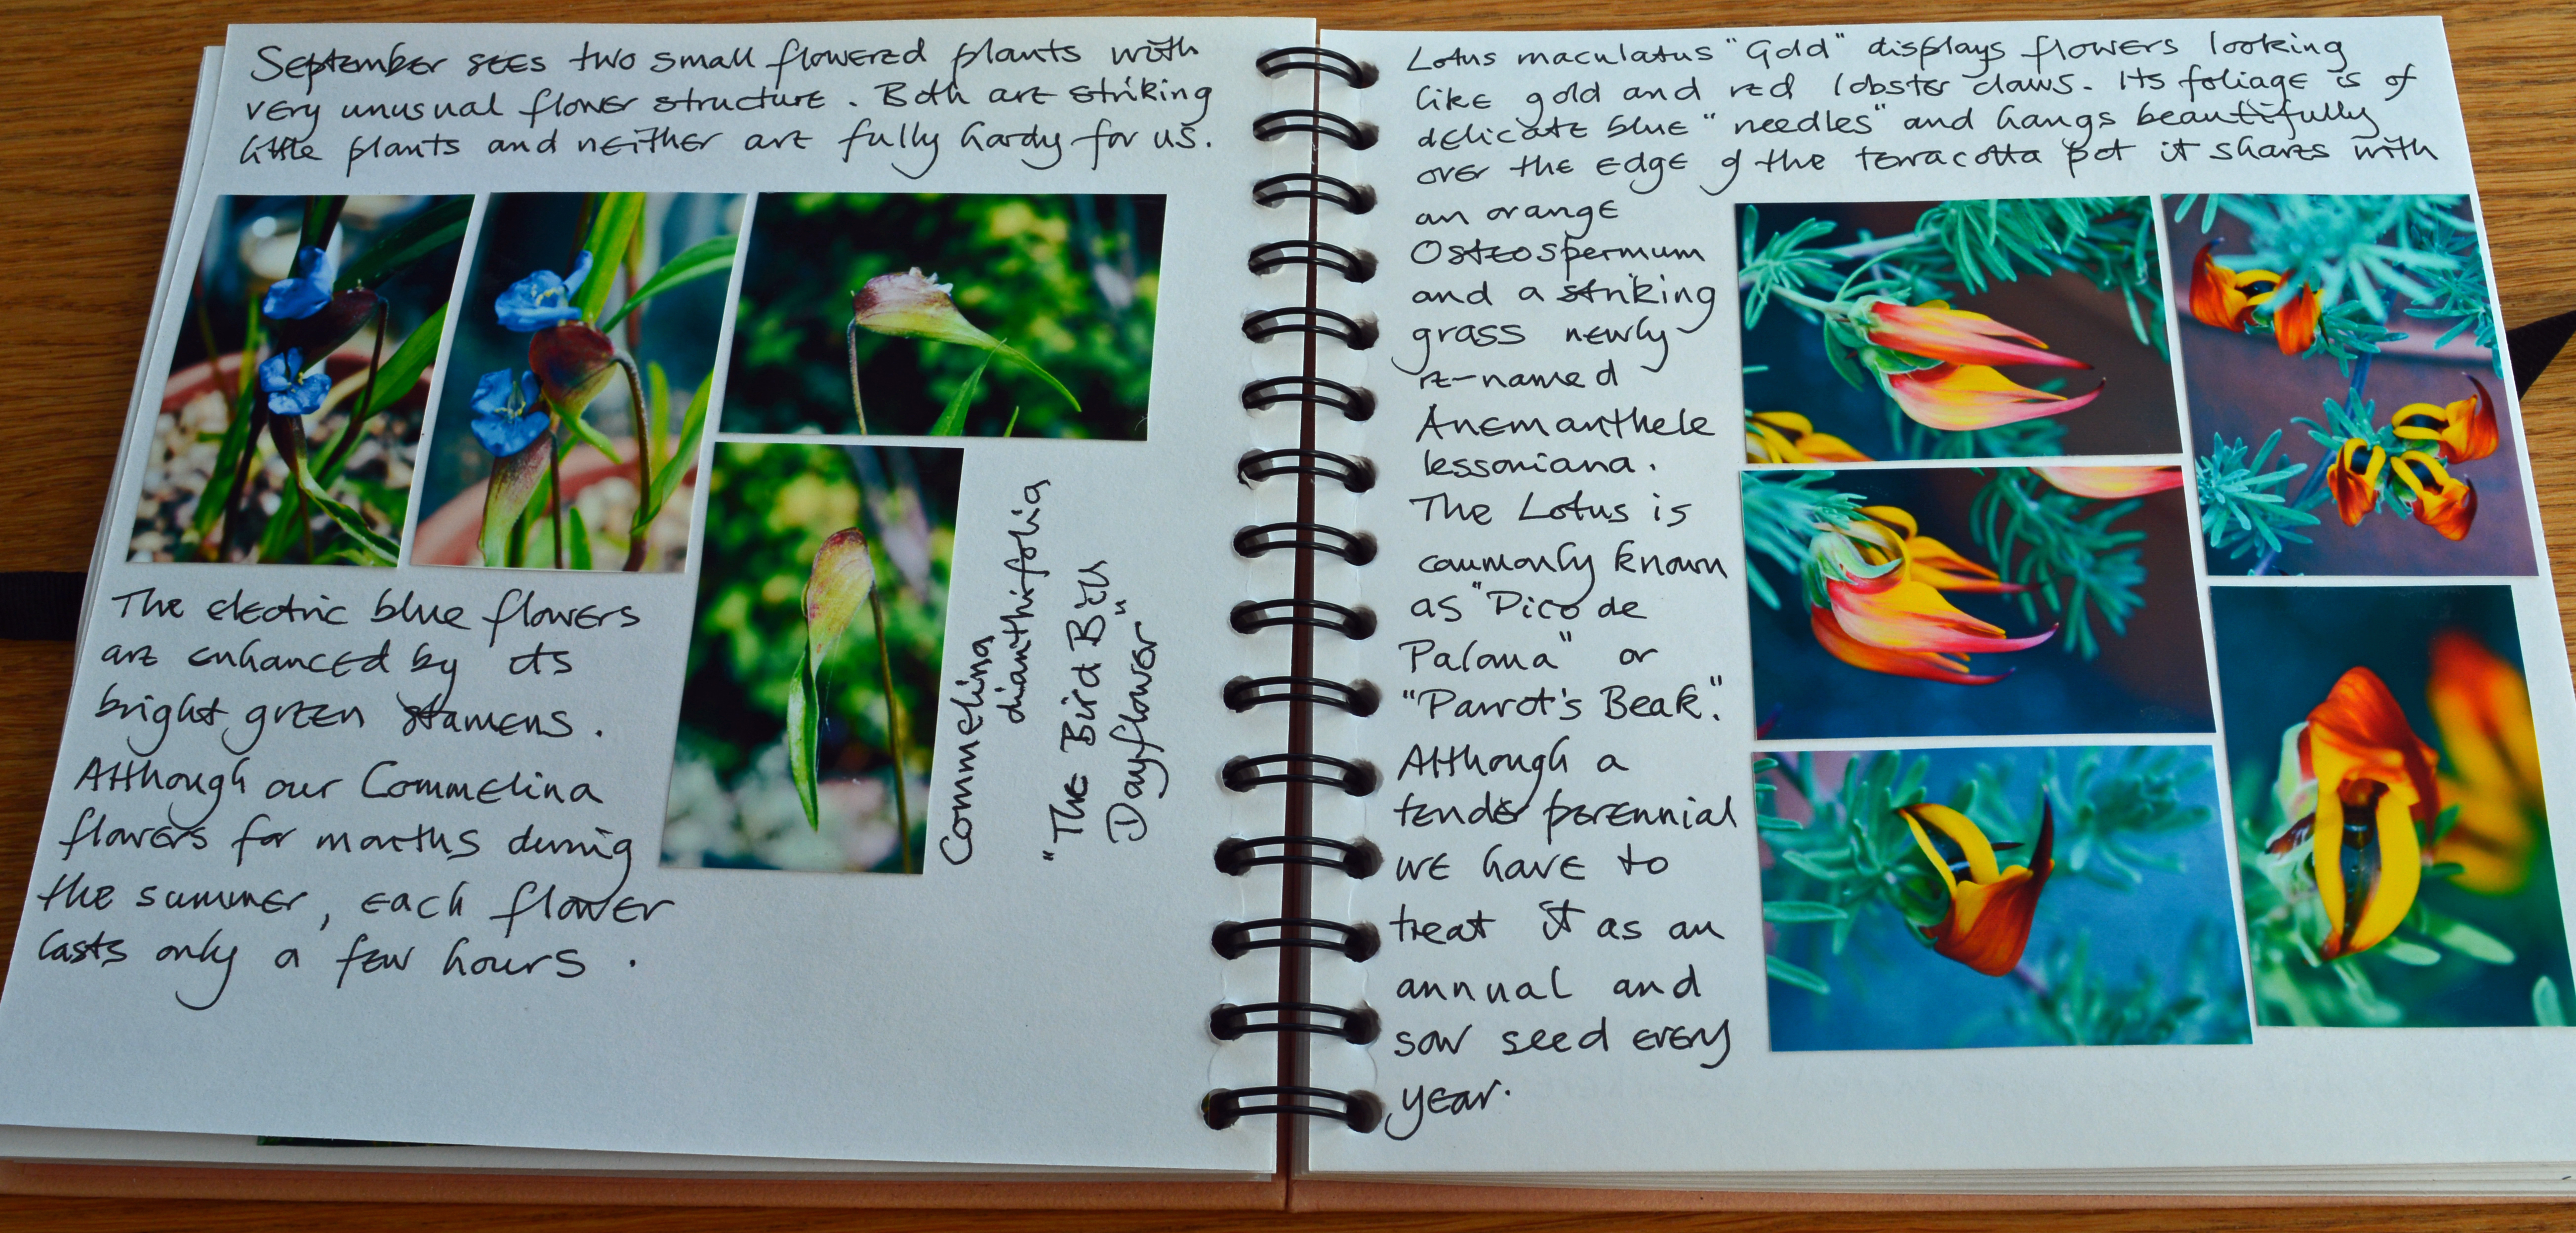 September sees two small flowered plants with
very unusual flower structure. Both are striking
little plants and neither are fully hardy for us.
The electric blue flowers
are enhanced by its
bright green stamens.
Although our Commelina
flowers for months during
the summer, each flower
lasts only a few hours.
Commelina
dianthifolia
"The Bird Bill
Dayflower"
Lotus maculatus "Gold" displays flowers looking
like gold and red lobster claws. Its foliage is of
delicate blue "needles" and hangs beautifully
over the edge of the terracotta pot it shares with
an orange
Osteospermum
and a striking
grass newly
re-named
Anemanthele
lessoniana.
The Lotus is
commonly known
as "Pico de
Paloma" or
"Parrot's Beak".
Although a
tender perennial
we have to
treat it as an
annual and
sow seed every
year.